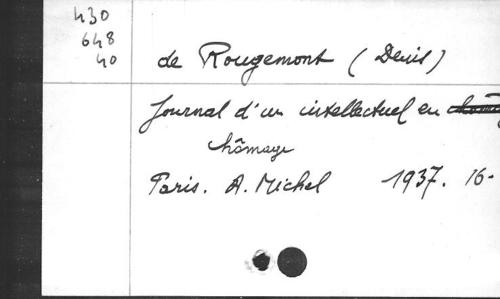 430
648
40
de Rougemont (Denis)
Journal d'un intellectuel en
chômage
Paris. A. Michel 1937. 16-